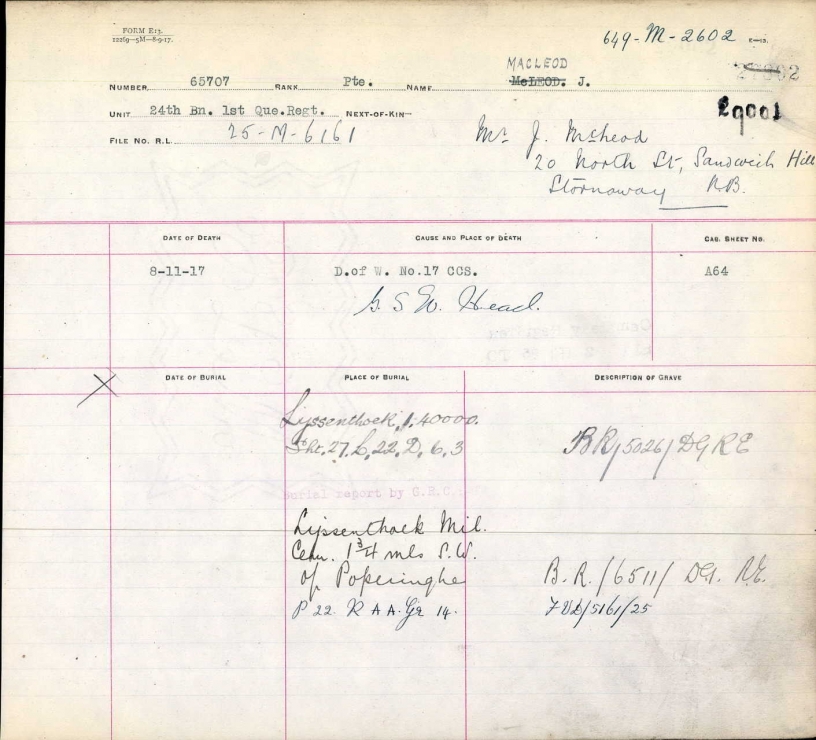 FORM E13.
12269—5M—8-9-17.
649-M-2602 E—13.
MACLEOD
NUMBER 65707 RANK Pte. NAME McLEOD. J.
UNIT 24th Bn. 1st Que.Regt. NEXT-OF-KIN—
FILE NO. R.L. 25-M-6161
Mr J. McLeod
20 North St, Sandwick Hill
Stornoway N.B.
DATE OF DEATH CAUSE AND PLACE OF DEATH CAS. SHEET NO.
8-11-17 D.of W. No.17 CCS. A64
G S W. Head.
DATE OF BURIAL PLACE OF BURIAL DESCRIPTION OF GRAVE
Lijssenthoek, 1:40000.
Sht. 27. L, 22, D, 6, 3 BR/5026/DGRE
Burial report by G.R.C.
Lijssenthoek Mil.
Cem. 1¾ mls S.W.
of Poperinghe B.R./6511/ DG. R.E.
P 22. R A A. Gr 14. 7 VD/5161/25